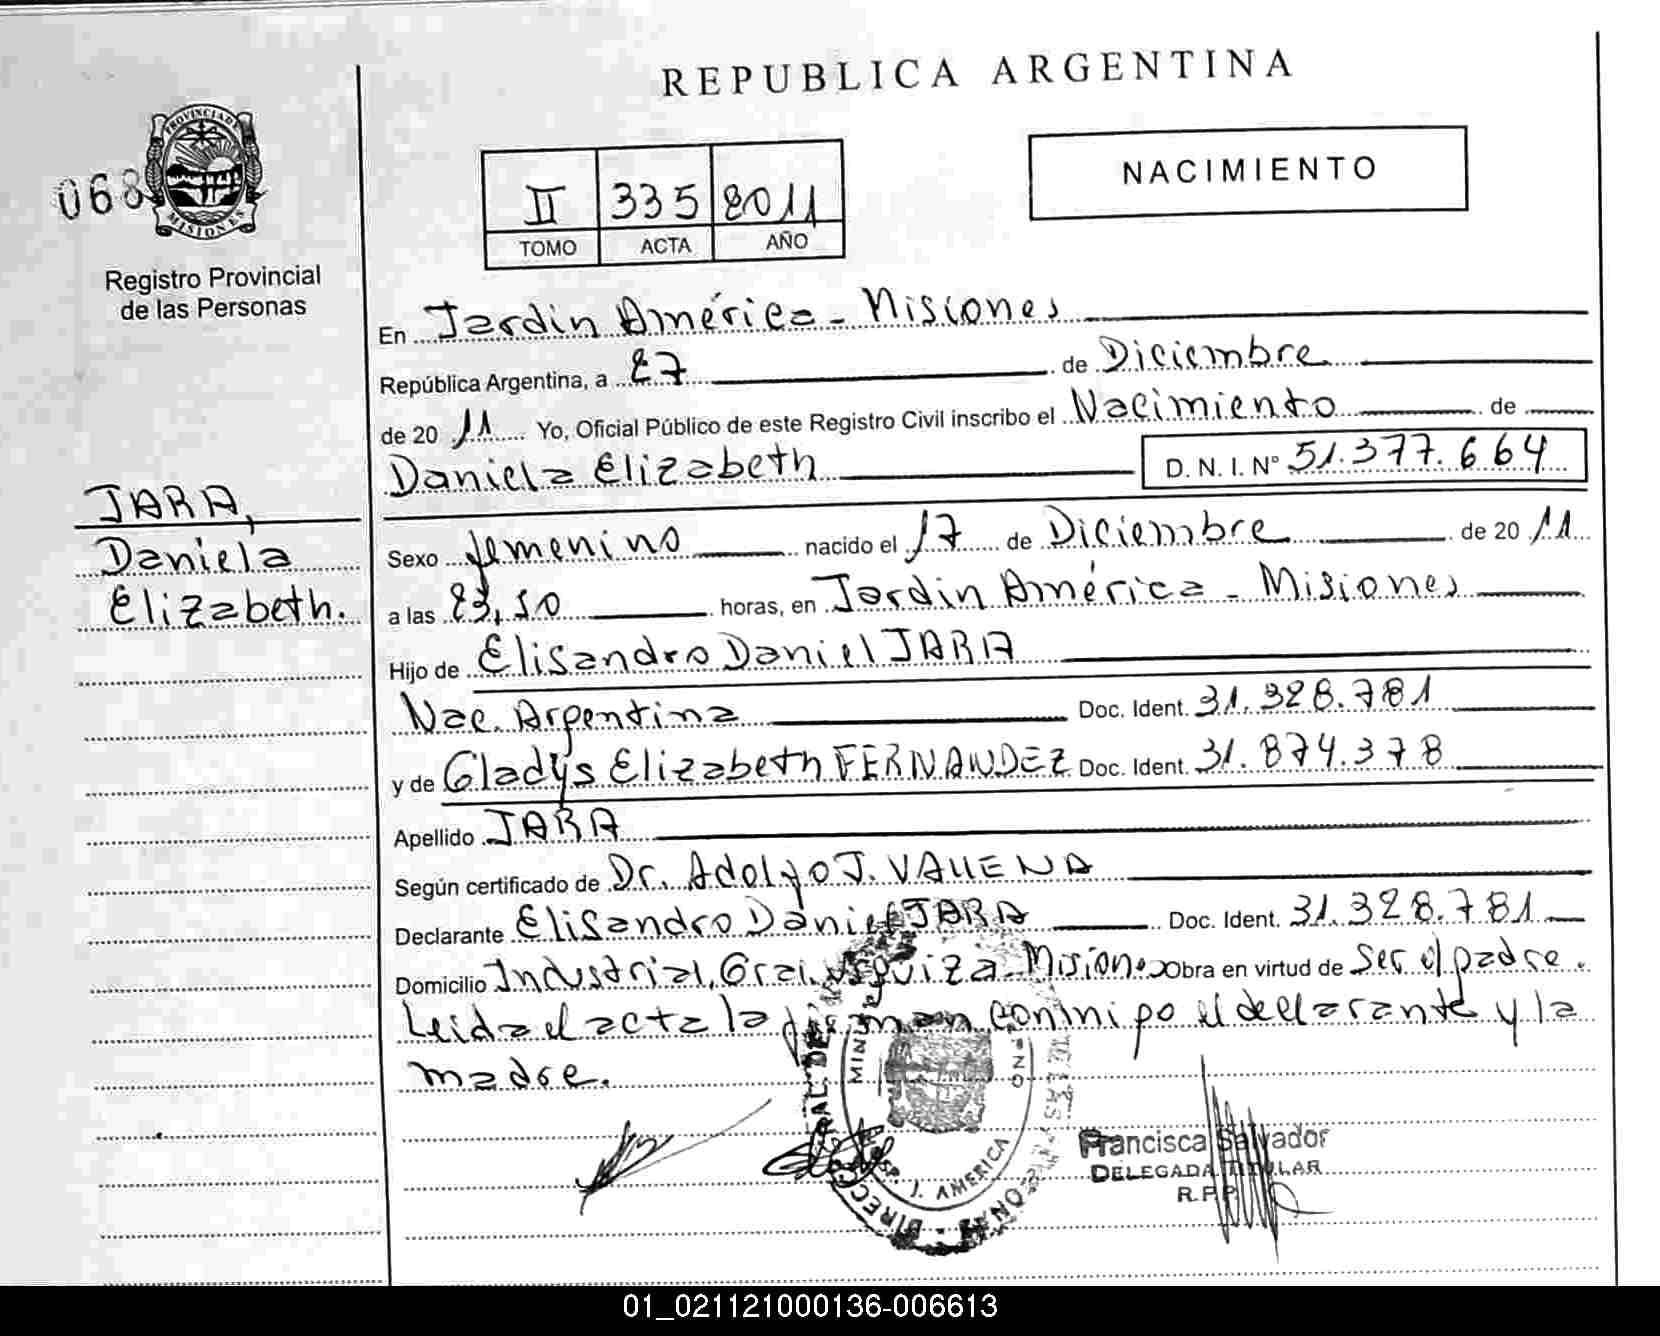 REPUBLICA ARGENTINA
NACIMIENTO
068
PROVINCIA DE MISIONES
Registro Provincial
de las Personas
II 335 2011
TOMO ACTA AÑO
En Jardín América - Misiones
República Argentina, a 27 de Diciembre
de 20 11 Yo, Oficial Público de este Registro Civil inscribo el Nacimiento de
Daniela Elizabeth D. N. I. N° 51.377.664
JARA,
Daniela
Elizabeth.
Sexo femenino nacido el 17 de Diciembre de 20 11
a las 23,10 horas, en Jardín América - Misiones
Hijo de Elisandro Daniel JARA
Nac. Argentina Doc. Ident. 31.328.781
y de Gladys Elizabeth FERNANDEZ Doc. Ident. 31.874.378
Apellido JARA
Según certificado de Dr. Adolfo J. VALLENA
Declarante Elisandro Daniel JARA Doc. Ident. 31.328.781
Domicilio Industrial, Gral. Urquiza - Misiones Obra en virtud de Ser el padre.
Leida el acta la firman conmigo el declarante y la
madre.
J. AMERICA
Francisca Salvador
DELEGADA TITULAR
R.P.P.
01_021121000136-006613